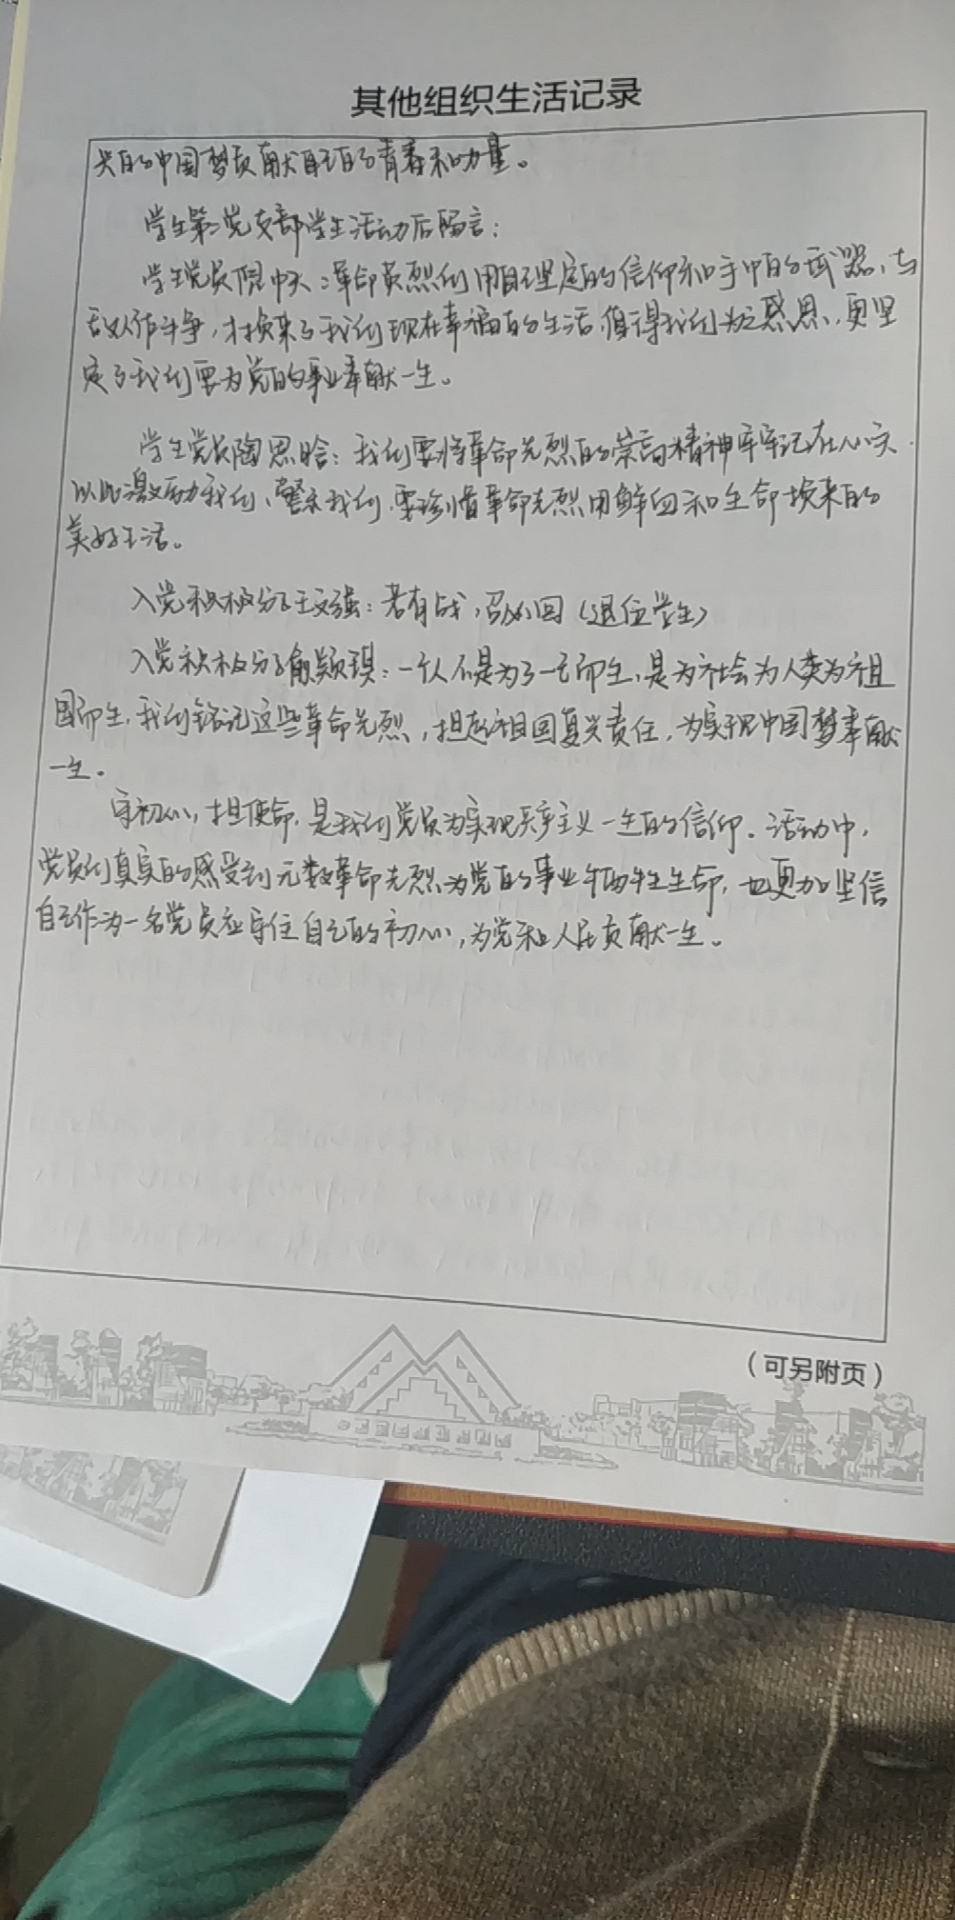 其他组织生活记录
兴的中国梦贡献自己的青春和力量。
学生第二党支部学生活动后留言：
学生党员倪中天：革命英烈们用自己坚定的信仰和手中的武器，与
敌人作斗争，才换来了我们现在幸福的生活，值得我们为之感恩，更坚
定了我们要为党的事业奉献一生。
学生党员陶思晗：我们要将革命先烈的崇高精神牢牢记在心头
以此激励我们、警示我们，要珍惜革命先烈用鲜血和生命换来的
美好生活。
入党积极分子王文强：若有战，召必回（退伍学生）
入党积极分子颖琪：一个人不是为了一己而生，是为社会为人类为祖
国而生，我们铭记这些革命先烈，担起祖国复兴责任，为实现中国梦奉献
一生。
守初心，担使命，是我们党员为实现共产主义一生的信仰。活动中，
党员们真实的感受到无数革命先烈为党的事业牺牲生命，也更加坚信
自己作为一名党员应守住自己的初心，为党和人民贡献一生。
（可另附页）